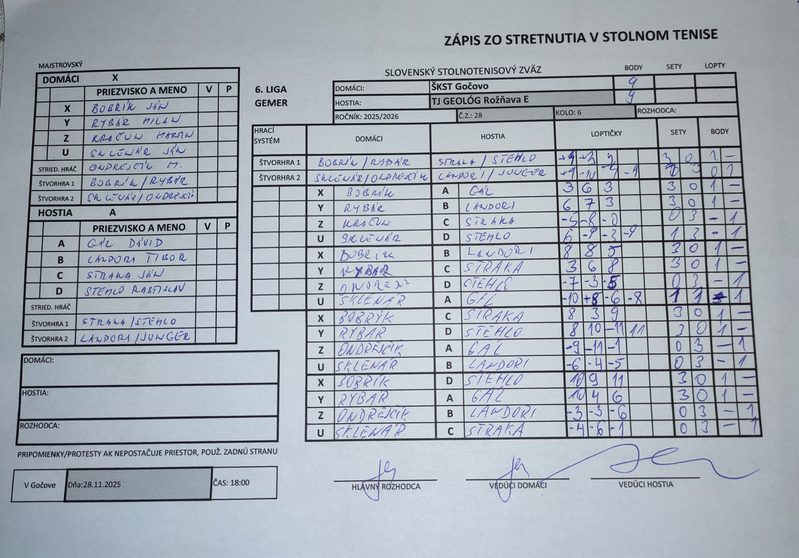 ZÁPIS ZO STRETNUTIA V STOLNOM TENISE
MAJSTROVSKÝ
SLOVENSKÝ STOLNOTENISOVÝ ZVÄZ BODY SETY LOPTY
DOMÁCI X
PRIEZVISKO A MENO V P
X BOBRÍK JÁN
Y RYBÁR MILAN
Z KRAČUN MARIAN
U SKLENÁR JÁN
STRIED. HRÁČ ONDREJČIK M.
ŠTVORHRA 1 BOBRÍK/RYBÁR
ŠTVORHRA 2 SKLENÁR/ONDREJČIK
HOSTIA A
PRIEZVISKO A MENO V P
A GÁL DÁVID
B LANDORI TIBOR
C STRAKA JÁN
D STEHLO RASTISLAV
STRIED. HRÁČ
ŠTVORHRA 1 STRAKA/STEHLO
ŠTVORHRA 2 LANDORI/JUNGER
DOMÁCI:
HOSTIA:
ROZHODCA:
PRIPOMIENKY/PROTESTY AK NEPOSTAČUJE PRIESTOR, POUŽ. ZADNÚ STRANU
V Gočove Dňa:28.11.2025 ČAS: 18:00
6. LIGA
GEMER
DOMÁCI: ŠKST Gočovo 9
HOSTIA: TJ GEOLÓG Rožňava E 9
ROČNÍK: 2025/2026 Č.Z.: 28 KOLO: 6 ROZHODCA:
HRACÍ SYSTÉM DOMÁCI HOSTIA LOPTIČKY SETY BODY
ŠTVORHRA 1 BOBRÍK/RYBÁR STRAKA/STEHLO 3 0 1 -
ŠTVORHRA 2 SKLENÁR/ONDREJČIK LANDORI/JUNGER
X BOBRÍK A GÁL 3 6 3 3 0 1 -
Y RYBÁR B LANDORI 6 7 3 3 0 1 -
Z KRAČUN C STRAKA -5 -8 -0 0 3 - 1
U SKLENÁR D STEHLO 6 -9 -2 -9 1 3 - 1
X BOBRÍK B LANDORI 8 8 5 3 0 1 -
Y RYBÁR C STRAKA 3 6 8 3 0 1 -
Z D STEHLO -7 -3 -5 0 3 - 1
U SKLENÁR A GÁL -10 +8 -6 -8 1 - 1
X BOBRÍK C STRAKA 8 3 9 3 0 1 -
Y RYBÁR D STEHLO 8 10 -11 11 3 0 1 -
Z ONDREJČIK A GÁL -9 -11 -1 0 3 - 1
U SKLENÁR B LANDORI -6 -4 -5 0 3 - 1
X BOBRÍK D STEHLO 10 9 11 3 0 1 -
Y RYBÁR A GÁL 10 4 6 3 0 1 -
Z ONDREJČIK B LANDORI -3 -3 -6 0 3 - 1
U SKLENÁR C STRAKA -4 -6 -1 0 3 - 1
HLAVNÝ ROZHODCA VEDÚCI DOMÁCI VEDÚCI HOSTIA